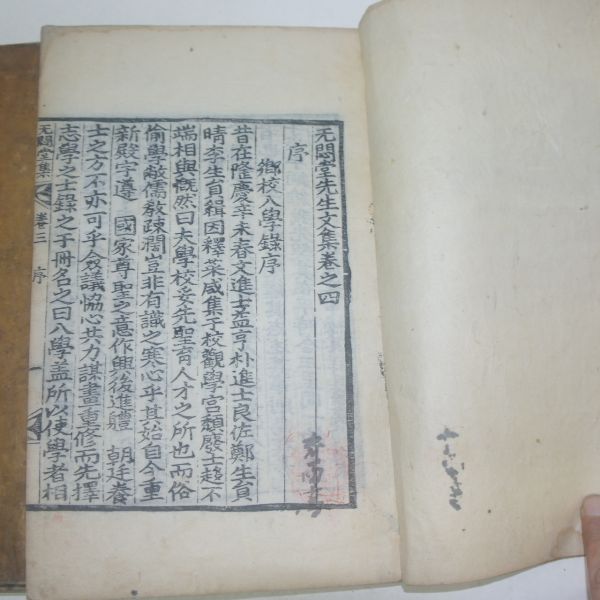 无悶堂先生文集卷之四
序
鄉校入學錄序
昔在隆慶辛未春文進士益亨朴進士良佐鄭生員
晴李生員緝因釋菜咸集于校觀學宮頹廢士趨不
端相與慨然曰夫學校妥先聖育人才之所也而俗
偷學敝儒敎疎濶豈非有識之寒心乎其始自今重
新殿宇遵 國家尊聖之意作興後進軆 朝廷養
士之方不亦可乎僉議恊心共力謀畫重修而先擇
志學之士錄之于冊名之曰入學盖所以使學者相
无悶堂集 卷三 序 一